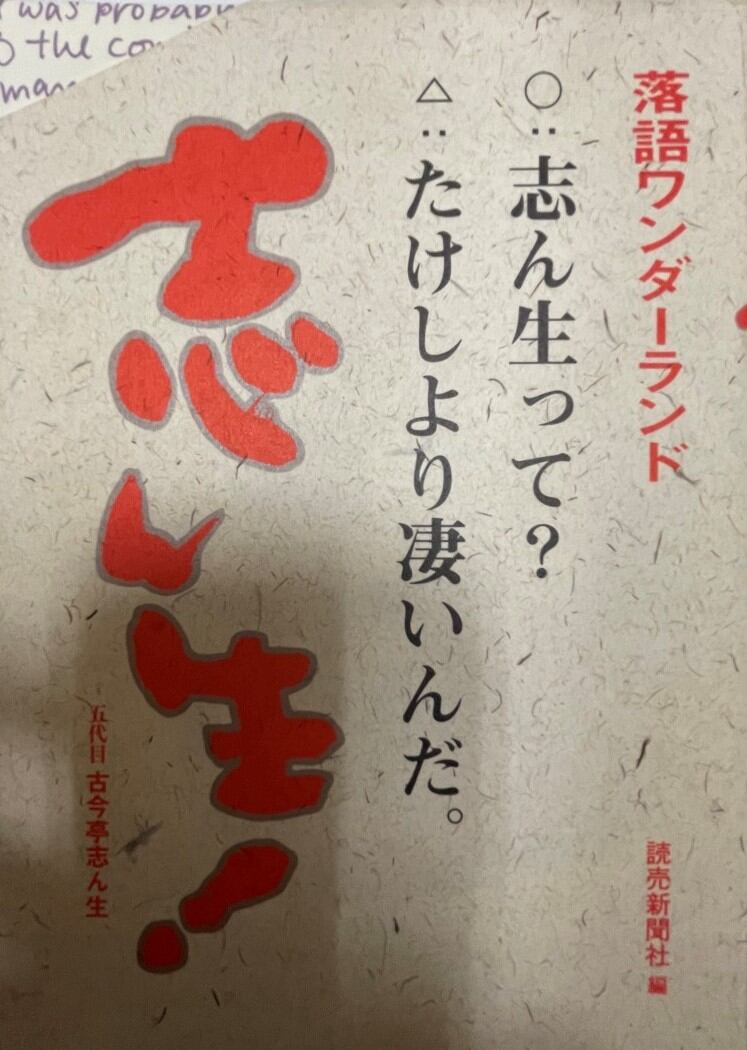 was probab
the co
落語ワンダーランド
読売新聞社 編
○：志ん生って？
△：たけしより凄いんだ。
志ん生！
五代目 古今亭志ん生